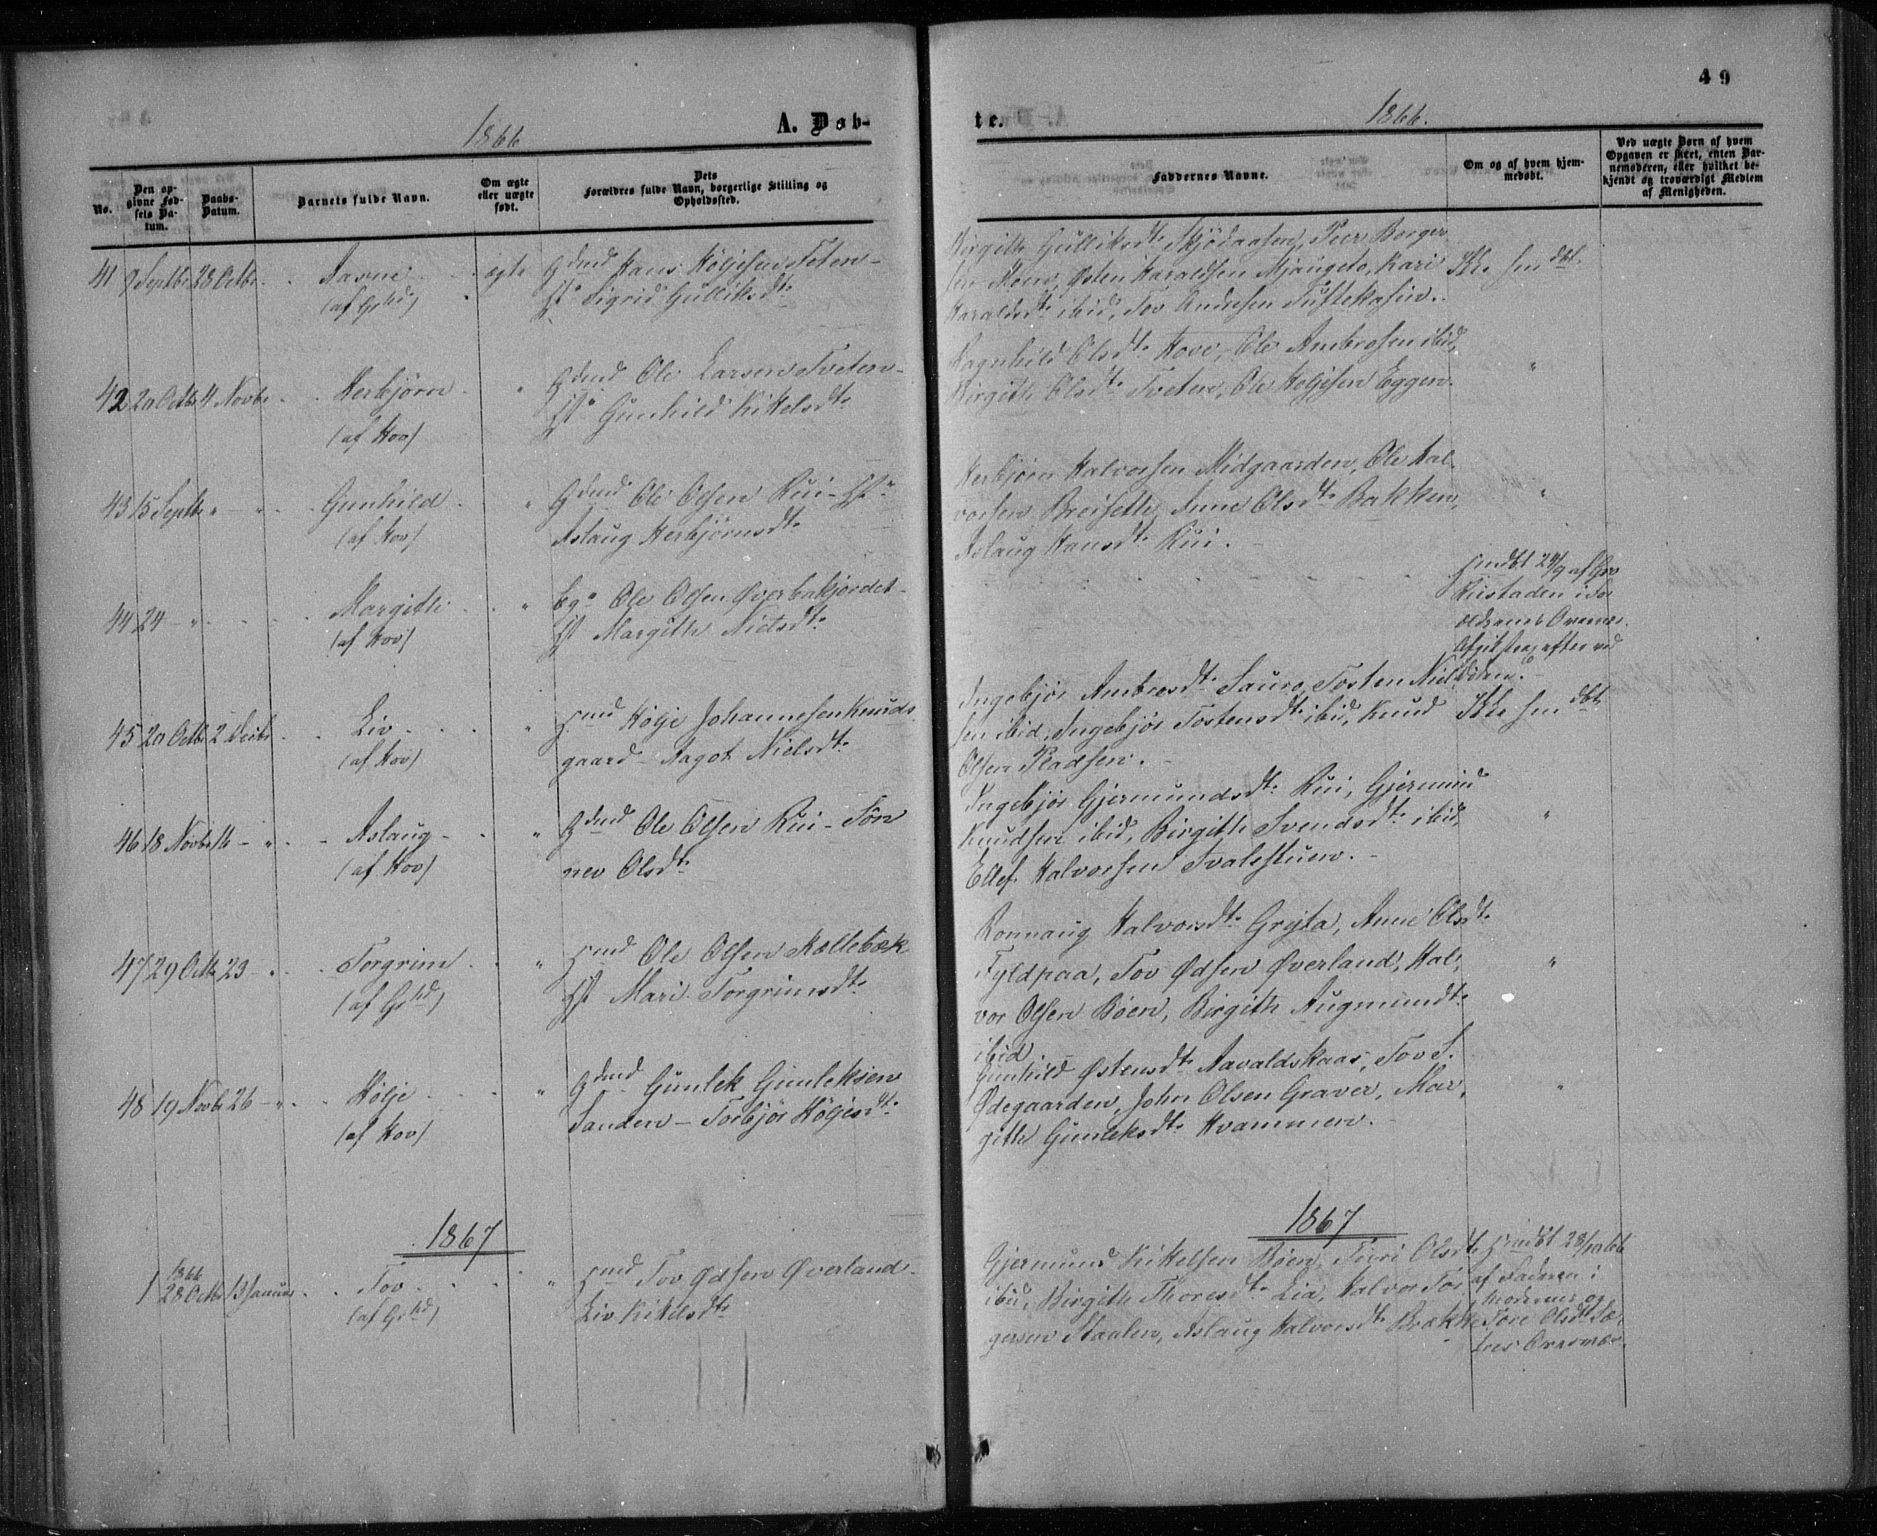 49
1866
A. Døb-
te.
1866.
No.
Den op-
givne Fød-
sels Da-
tum.
Daabs-
Datum.
Barnets fulde Navn.
Om ægte
eller uægte
født.
Dets
Forældres fulde Navn, borgerlige Stilling og
Opholdssted.
Faddernes Navne.
Om og af hvem hjem-
medøbt.
Ved uægte Børn af hvem
Opgaven er skeet, enten Bar-
nemoderen, eller hvilket be-
kjendt og troværdigt Medlem
af Menigheden.
41 9 Septbr 28 Octbr. Aavne ægte Gdmd Hans Høljesen Teten-
(af Grhd) Hst Sigrid Gulliksdtr
Birgith Gulliksdtr Skjødaasen, Peer Borger
sen Moen, Østen Haraldsen Mjaugeto, Kari
Haraldsdtr ibid, Tov Andresen Tuftekasin.
Ikke hmdbt.
42 20 Octbr 4 Novbr Herbjørn " Gdmd Ole Larsen Tveten-
(af Hov) Hst Gunhild Kittelsdtr
Ragnhild Olsdtr Hove, Ole Ambrosen ibid,
Birgith Olsdtr Tveten, Ole Høljesen Eggen.
"
43 15 Septbr " " Gunhild " Gdmd Ole Olsen Rui - Hst
(af Hov) Aslaug Herbjørnsdtr
Herbjørn Halvorsen Midgaarden, Ole Hal-
vorsen Breisette, Anne Olsdtr Bakken,
Aslaug Hansdtr Rui.
"
44 24 " Margith " Ole Olsen Øverbakjordet
(af Hov) Hst Margith Nielsdtr
hmdbt 24/9 af Gro
Rustaden i For
ældrenes Overvær.
45 20 Octbr 2 Decbr Liv " Hmd Hølje Johannesen Knuds
(af Hov) gaard - Aagot Nielsdtr
Ingebjør Ambrosdtr Sauro, Tosten Niel
sen ibid, Ingebjør Tostensdtr ibid, Knud
Olsen Pladsen.
Ikke hmdbt
46 18 Novbr 16 " Aslaug " Gdmd Ole Olsen Rui - Søn
(af Hov) nev Olsdtr
Ingebjør Gjermundsdtr Rui, Gjermund
Knudsen ibid, Birgith Svendsdtr ibid,
Ellef Halvorsen Svalestuen.
"
47 29 Octbr 23 " Torgrim " Hmd Ole Olsen Kollebæk
(af Grhd) Hst Mari Torgrimsdtr
Ronnaug Halvorsdtr Grejta, Anne Olsdtr
Fyldpaa, Tov Ødsen Øverland, Hal-
vor Olsen Bøen, Birgith Augmundsdtr
ibid
"
48 19 Novbr 26 " Hølje " Gdmd Gunlek Gunleksen
(af Hov) Sanden - Torbjør Høljesdtr
Gunhild Østensdtr Aavaldskaas, Tov S.
Ødegaarden, John Olsen Graver, Mar-
gith Gunleksdtr Kvammen.
"
1867
1867
1 1866 28 Octbr 13 Januar Tov " Hmd Tov Ødsen Øverland
(af Grhd) Liv Kittelsdtr
Gjermund Kittelsen Bøen, Turi Olsdtr
ibid, Birgith Thoresdtr Lia, Halvor Tor
gersen Staalen, Aslaug Halvorsdtr Bække
Hmdbt 28/10 66
af Faderen i
Moderens og
Tore Olsdtr Sæ-
tres Overvær.